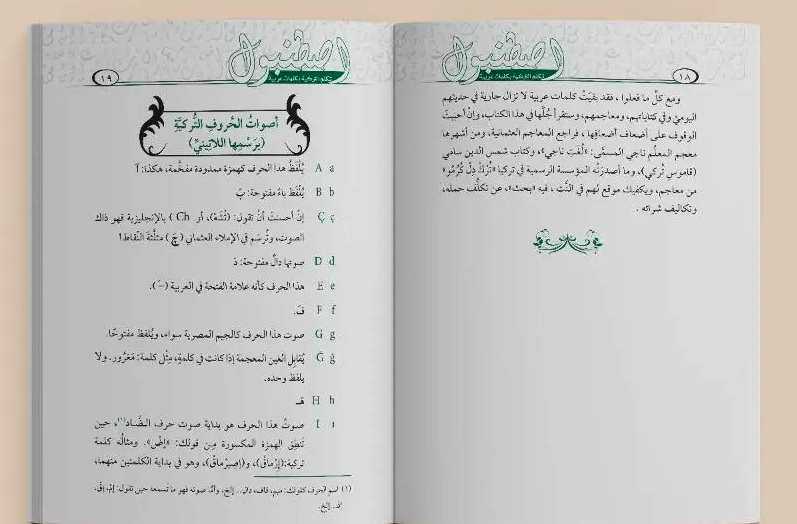 اصطنبول
تكلم التركية بكلمات عربية
١٨
ومع كلِّ ما فعلوا، فقد بقيَتْ كلمات عربية لا تزال جارية في حديثهم
اليوميّ وفي كتاباتهم، ومعاجمهم، وستقرأ جُلَّها في هذا الكتاب، وإنْ أحببتَ
الوقوف على أضعاف أضعافِها، فراجع المعاجم العثمانية، ومن أشهرها
معجم المعلِّم ناجي المسمَّى: «لُغَت ناجي»، وكتاب شمس الدين سامي
(قاموس تُركي)، وما أصدرَتْه المؤسسة الرسمية في تركيا «تُرْكْ دِلْ كُرُمُو»
من معاجم، ويكفيك موقع لهم في النِّت، فيه «بحث»، عن تكلُّف حمله،
وتكاليف شرائه.
اصطنبول
تكلم التركية بكلمات عربية
١٩
أصواتُ الحُروفِ التُّركيَّةِ
(برَسْمِها اللاتِينيِّ)
A a يُلْفَظُ هذا الحرف كهمزة ممدودة مفخَّمة، هكذا: آ
B b يُلْفَظ باءً مفتوحة: بَ
Ç ç إنْ أحسنتَ أنْ تقول: (تْشَهْ)، أو Ch) بالإنجليزية فهو ذاك
الصوت، وتُرسَم في الإملاء العثماني (چ) مثلَّثةَ النِّقاط!
D d صوتها دالٌ مفتوحة: دَ
E e هذا الحرف كأنه علامة الفتحة في العربية (ــَـ).
F f فَـ.
G g صوت هذا الحرف كالجيم المصرية سواء، ويُلفظ مفتوحًا.
Ğ ğ يُقابِل الغين المعجمة إذا كانت في كلمةٍ، مِثْل كلمة: مَغْرُور. ولا
يلفظ وحده.
H h هَـ
I ı صوتُ هذا الحرف هو بداية صوت حرف الضَّاد(١)، حين
تَنطِق الهمزة المكسورة مِن قولك: «إِضْ». ومثالُه كلمة
تركية: (إِرْماقْ)، و(إصيرْماقْ)، وهو في بداية الكلمتين منهما،
(١) اسم الحرف كقولك: ميم، قاف، دال.. إلخ، وأمَّا صوته فهو ما تَسمعه حين تقول: إِمْ، إِقْ،
إلخ.